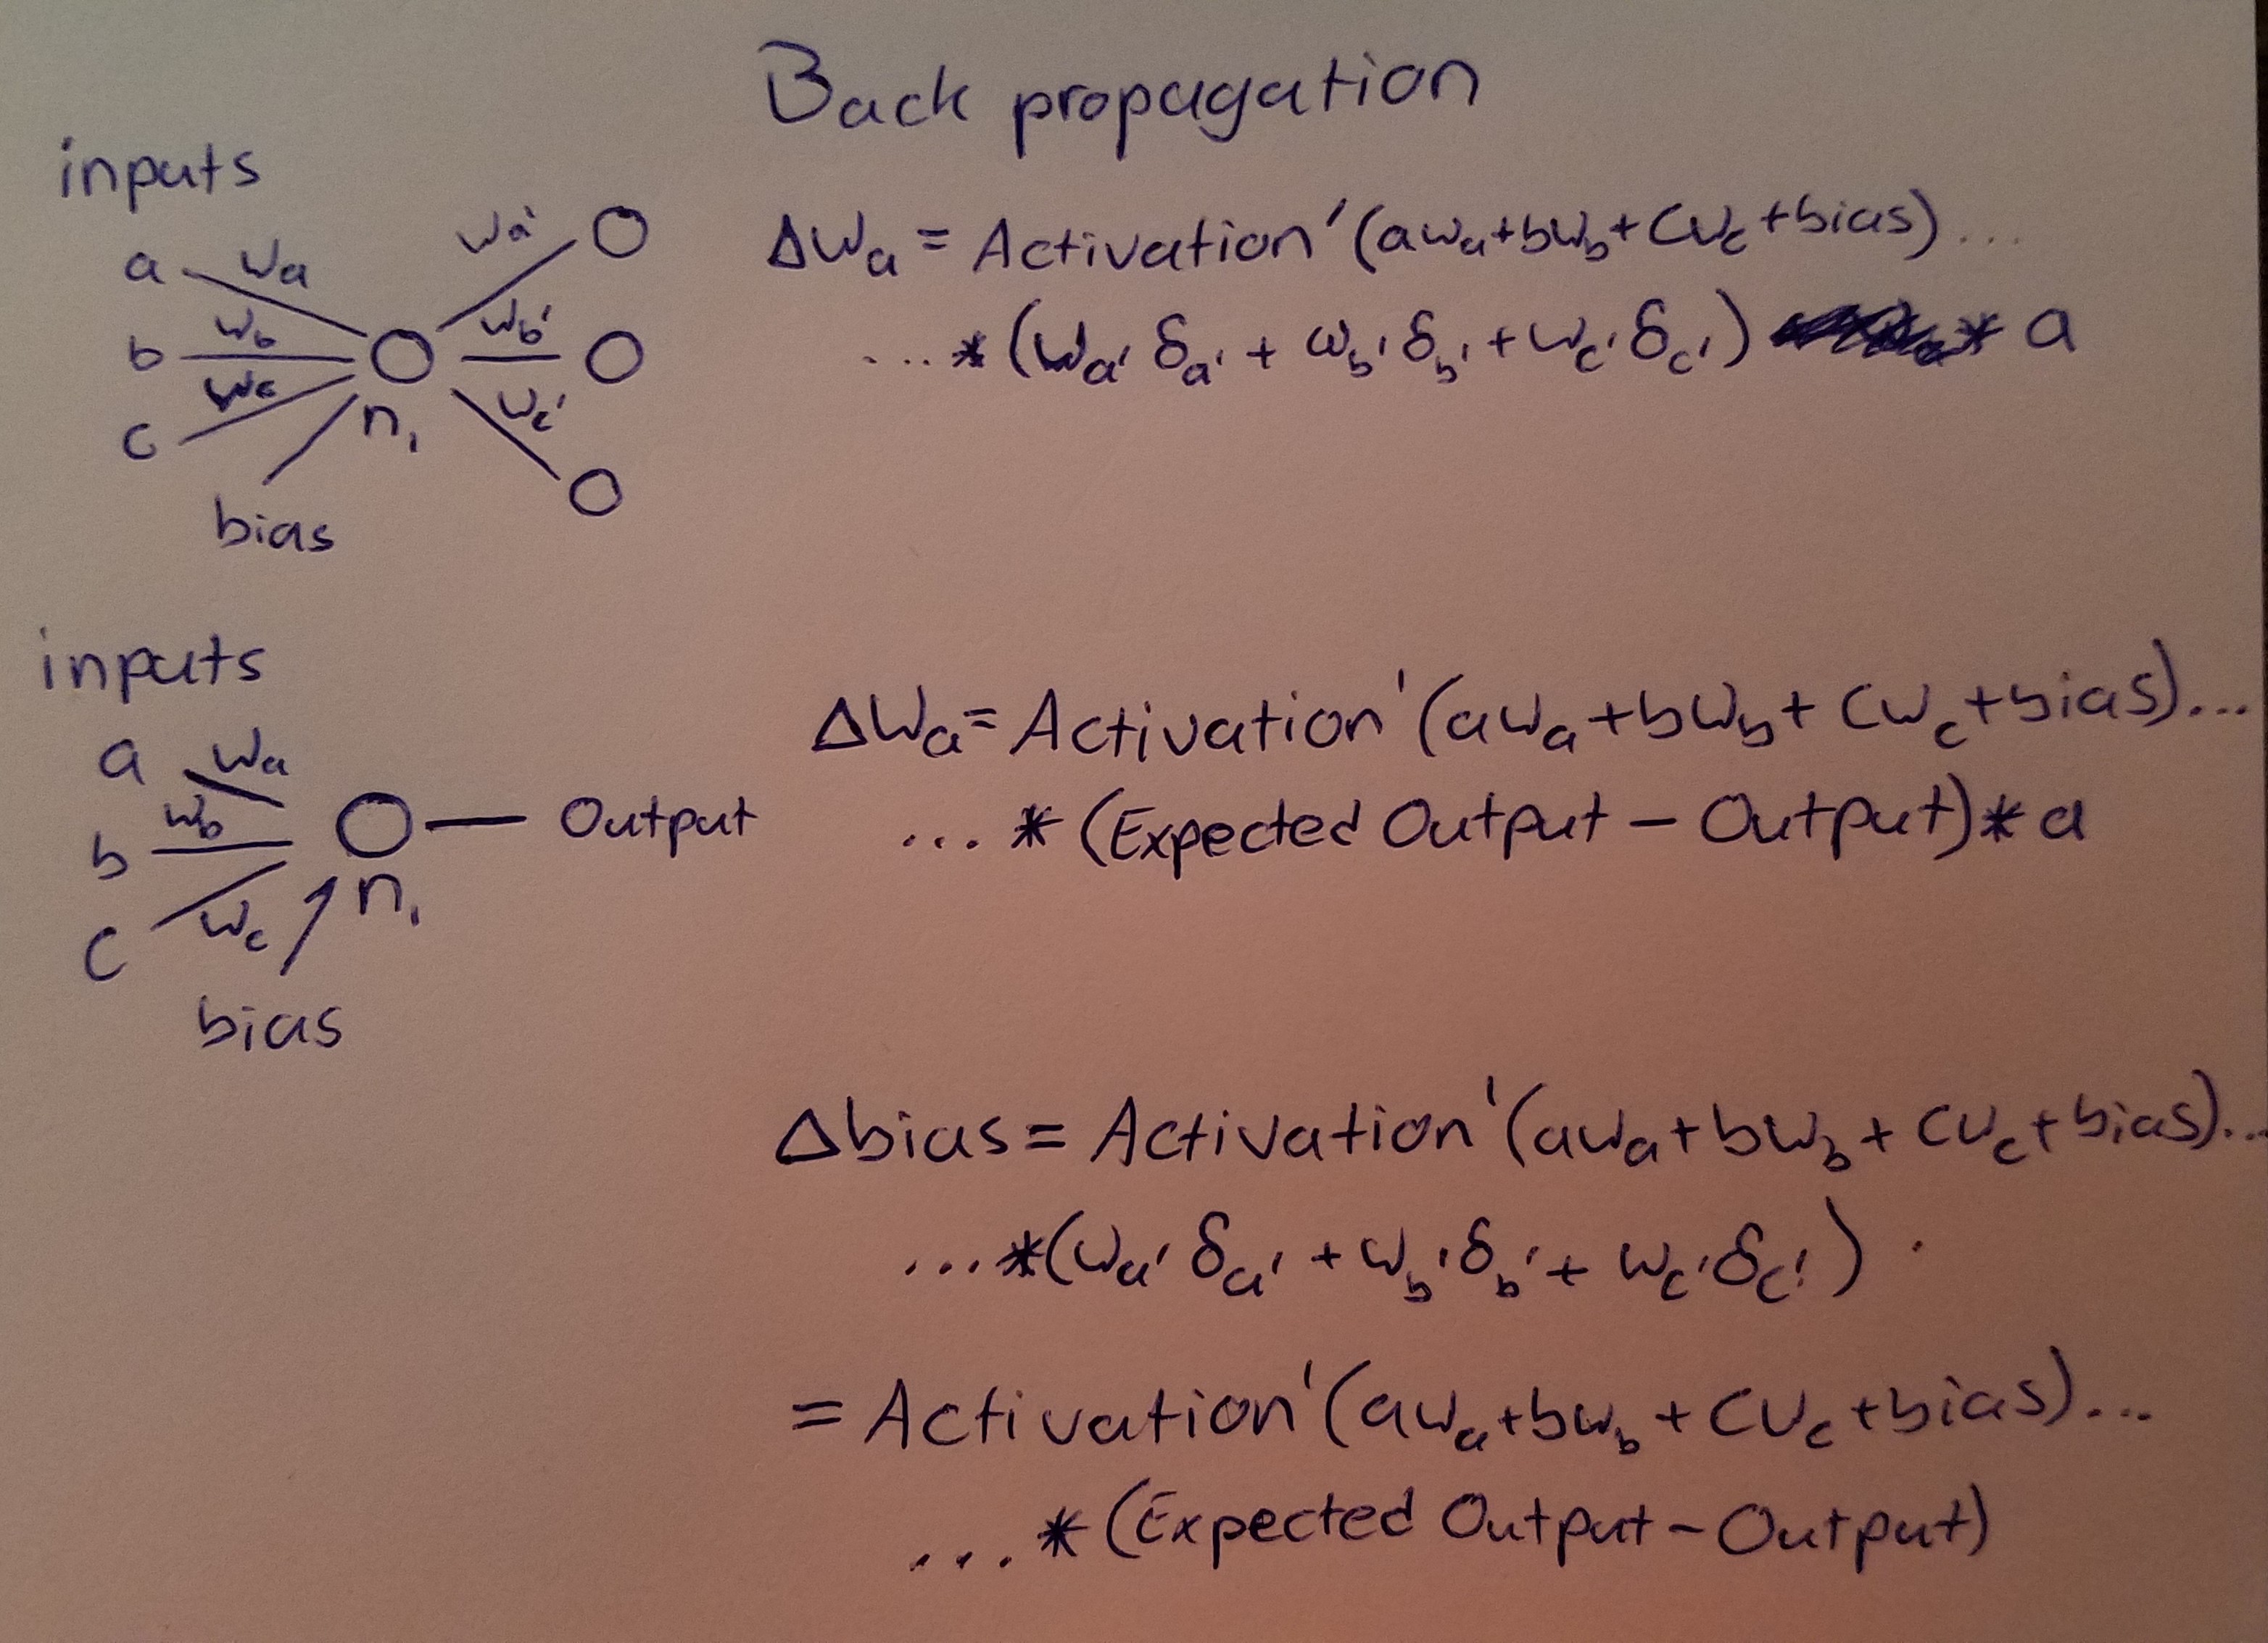 Back propagation
inputs
a wa wa'
b wb wb'
c wc wc'
n1
bias
Δwa = Activation'(awa+bwb+cwc+bias)...
...*(wa' δa' + wb' δb' + wc' δc') * a
inputs
a wa
b wb Output
c wc n1
bias
Δwa = Activation'(awa+bwb+cwc+bias)...
...*(Expected Output - Output)*a
Δbias = Activation'(awa+bwb+cwc+bias)...
...*(wa' δa' + wb' δb' + wc' δc')
= Activation'(awa+bwb+cwc+bias)...
...*(Expected Output - Output)